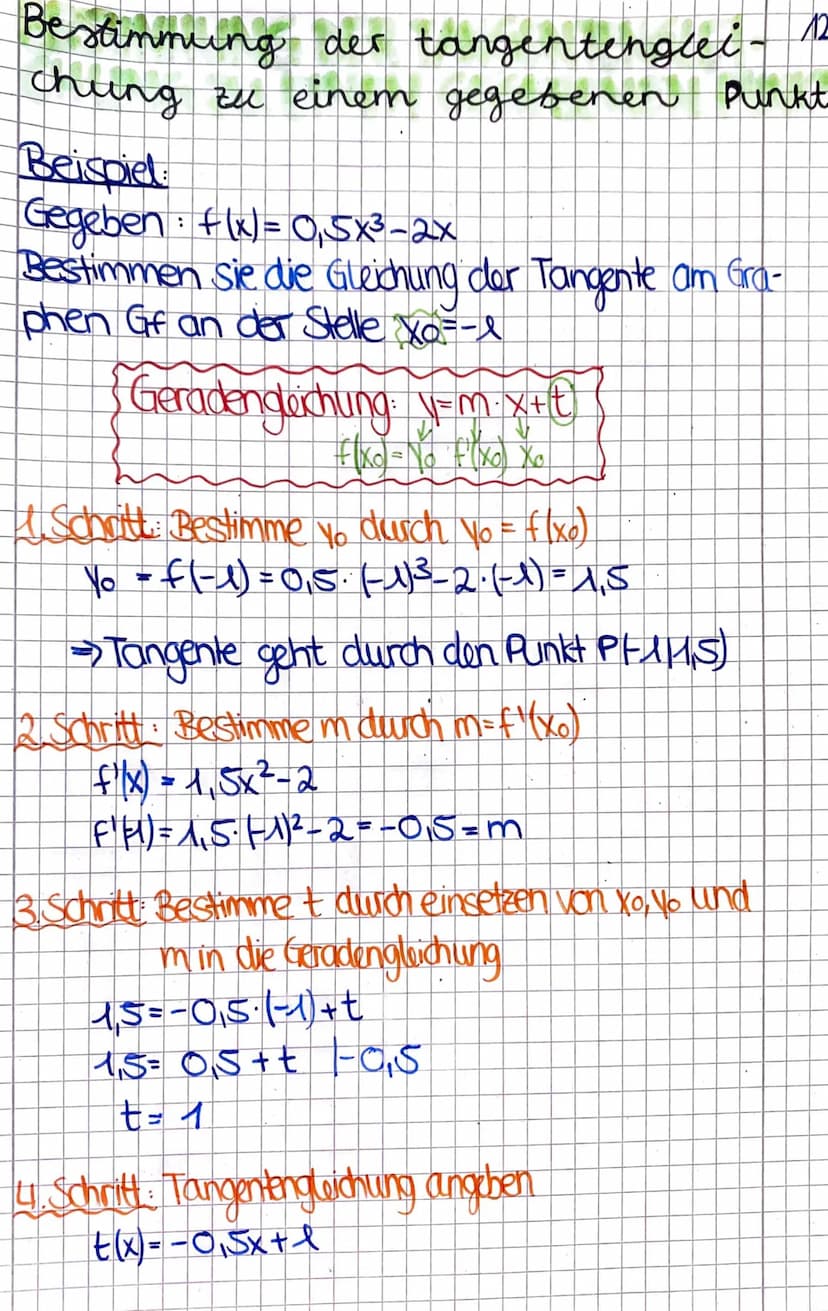 Bestimmung der tangentenglei- 12
chung zu einem gegebenen Punkt
Beispiel:
Gegeben: f(x)= 0,5x³-2x
Bestimmen sie die Gleichung der Tangente am Gra-
phen Gf an der Stelle x₀=-1
Geradengleichung: y=m·x+t
f(x₀)=y₀ f'(x₀) x₀
1.Schritt: Bestimme y₀ durch y₀ = f(x₀)
y₀ = f(-1) = 0,5·(-1)³-2·(-1) = 1,5
⇒ Tangente geht durch den Punkt P(-1|1,5)
2.Schritt: Bestimme m durch m=f'(x₀)
f'(x) = 1,5x²-2
f'(-1) = 1,5·(-1)²-2 = -0,5 = m
3.Schritt: Bestimme t durch einsetzen von x₀, y₀ und
m in die Geradengleichung
1,5=-0,5·(-1)+t
1,5= 0,5+t |-0,5
t= 1
4.Schritt: Tangentengleichung angeben
t(x)=-0,5x+1